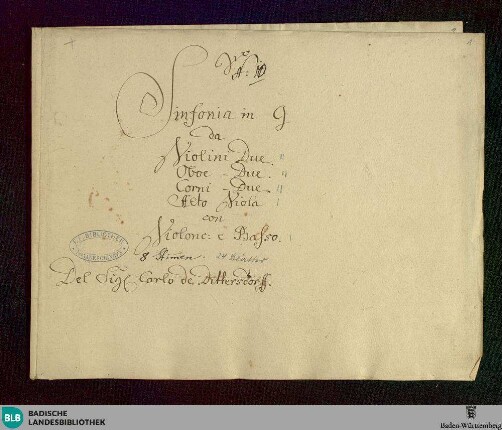 Nro
A: 10
Sinfonia in G
da
Violini Due "
Oboe - Due "
Corni - Due "
Alto Viola
con
Violonc: e Basso
8 Stimen 24 Blätter
Del Sigl Carlo de Dittersdorff.
BLB BADISCHE
LANDESBIBLIOTHEK
Baden-Württemberg